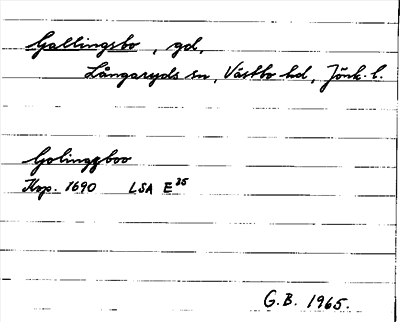 Gallingsbo, gd,
Långaryds sn, Västbo hd, Jönk. l.
Golinggboo
Kop. 1690 LSA E35
G.B. 1965.